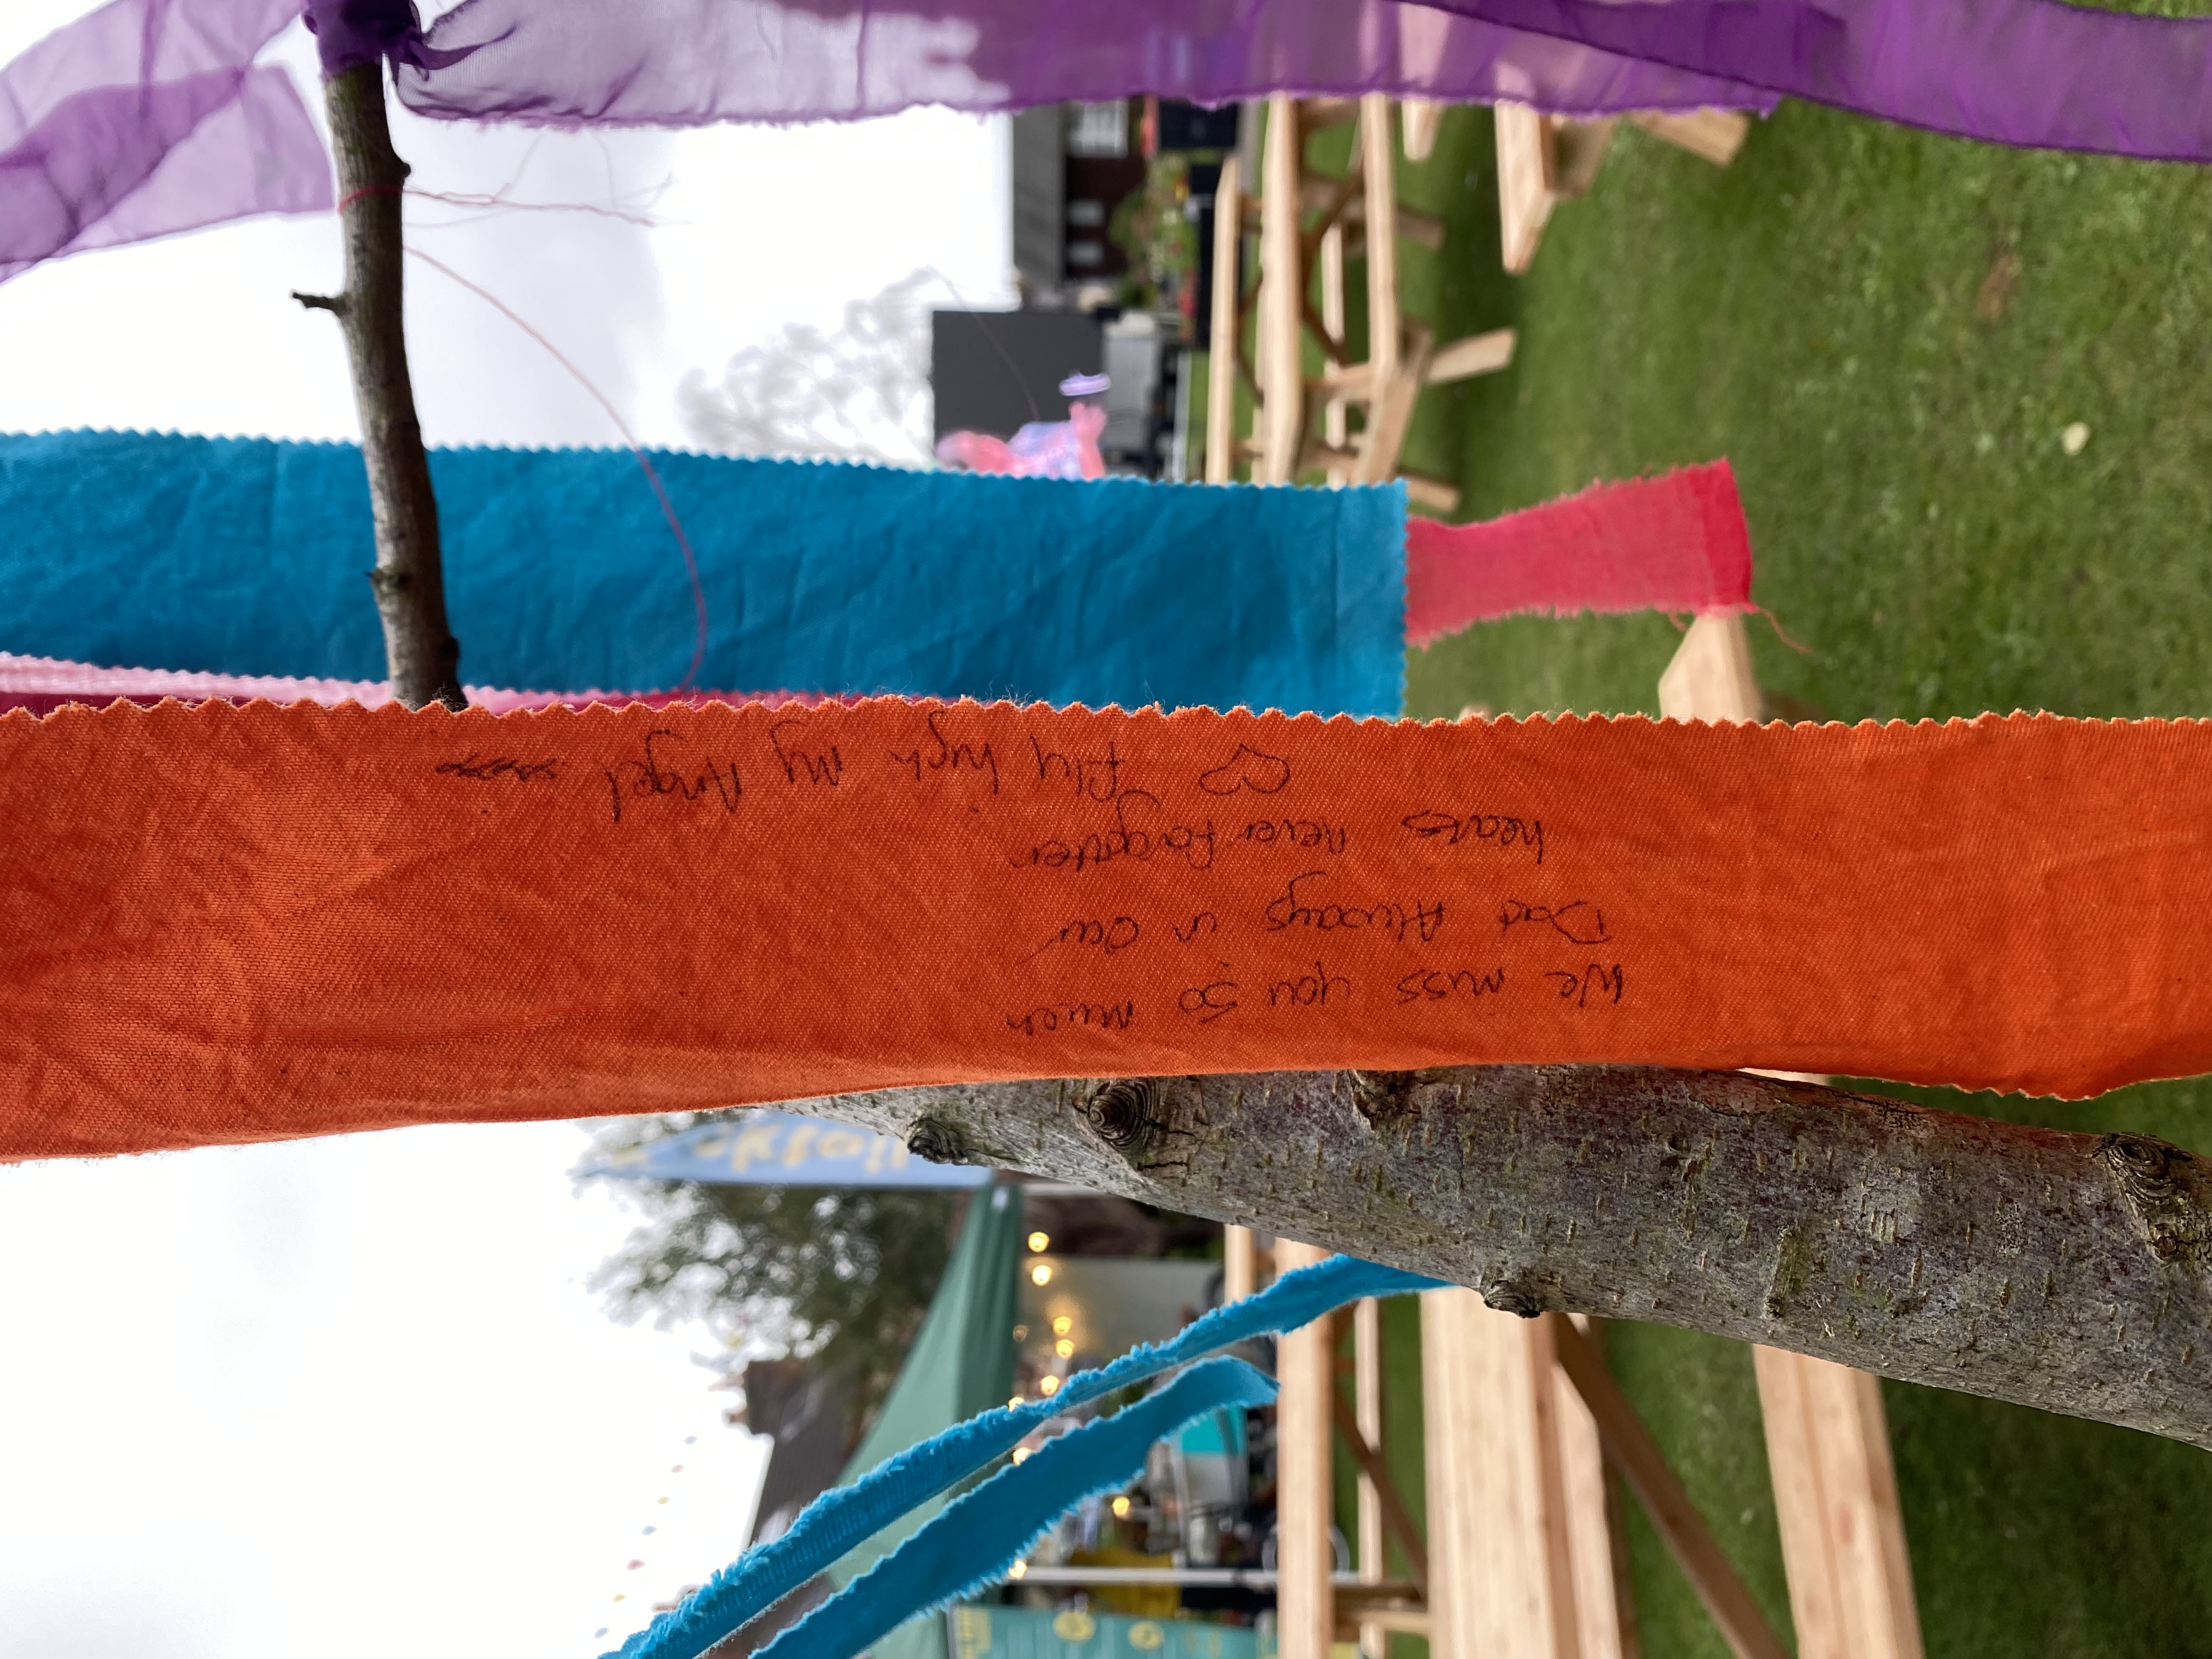 We miss you so much
Dad Always in our
hearts never forgotten
♡ fly high my Angel xxxxxx